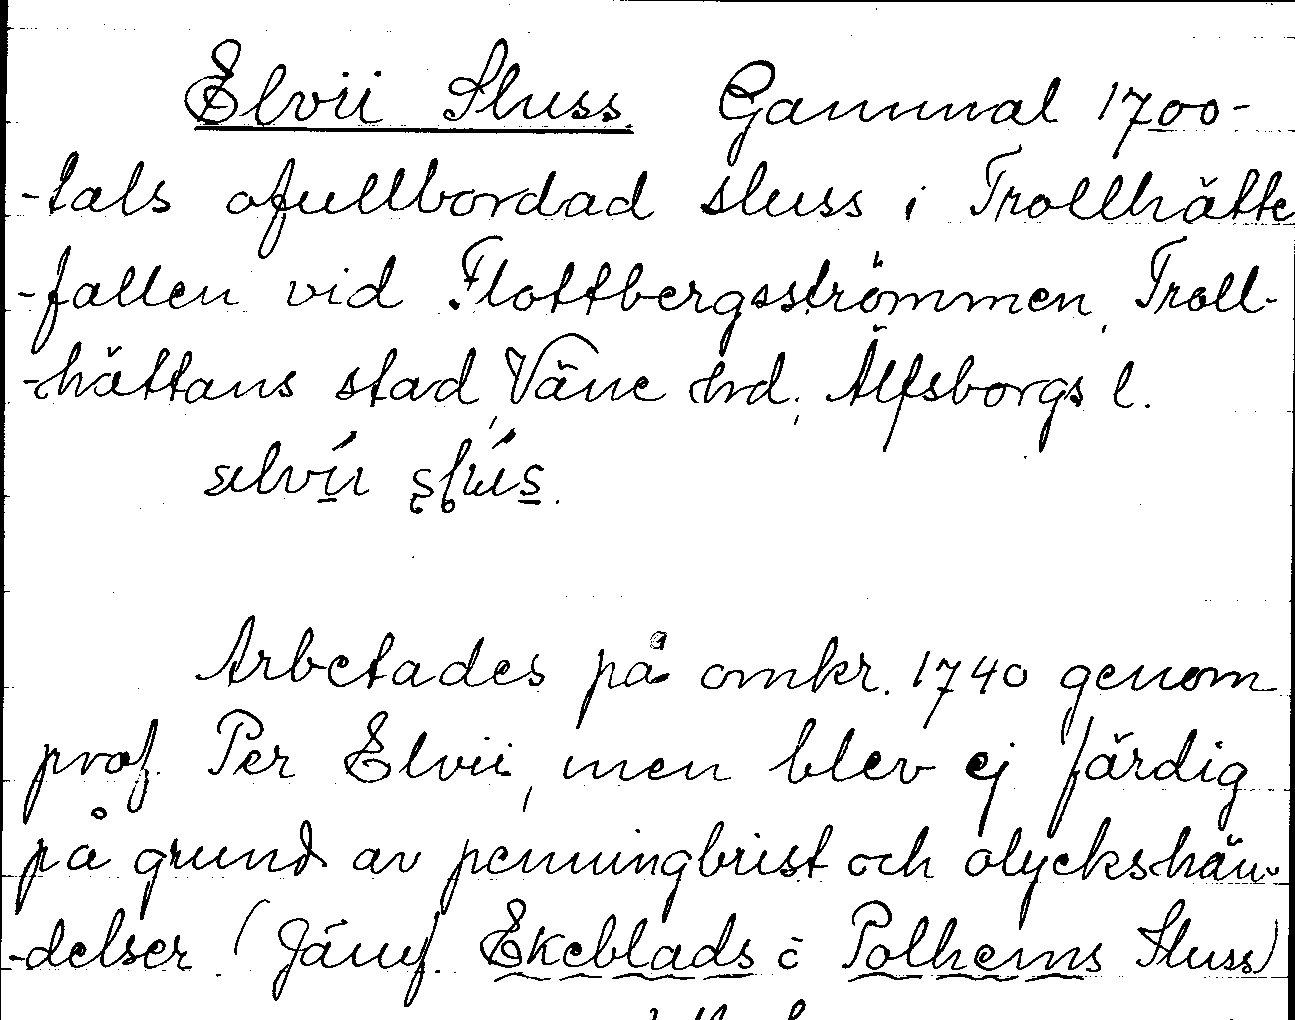 Elvii Sluss. Gammal 1700-
-tals ofullbordad sluss i Trollhätte
-fallen vid Flottbergsströmmen, Troll-
-hättans stad, Väne hrd, Älfsborgs l.
Arbetades på omkr. 1740 genom
prof. Per Elvii, men blev ej färdig
på grund av penningbrist och olyckshän-
-delser. (Jämf. Ekeblads o Polhems Sluss)